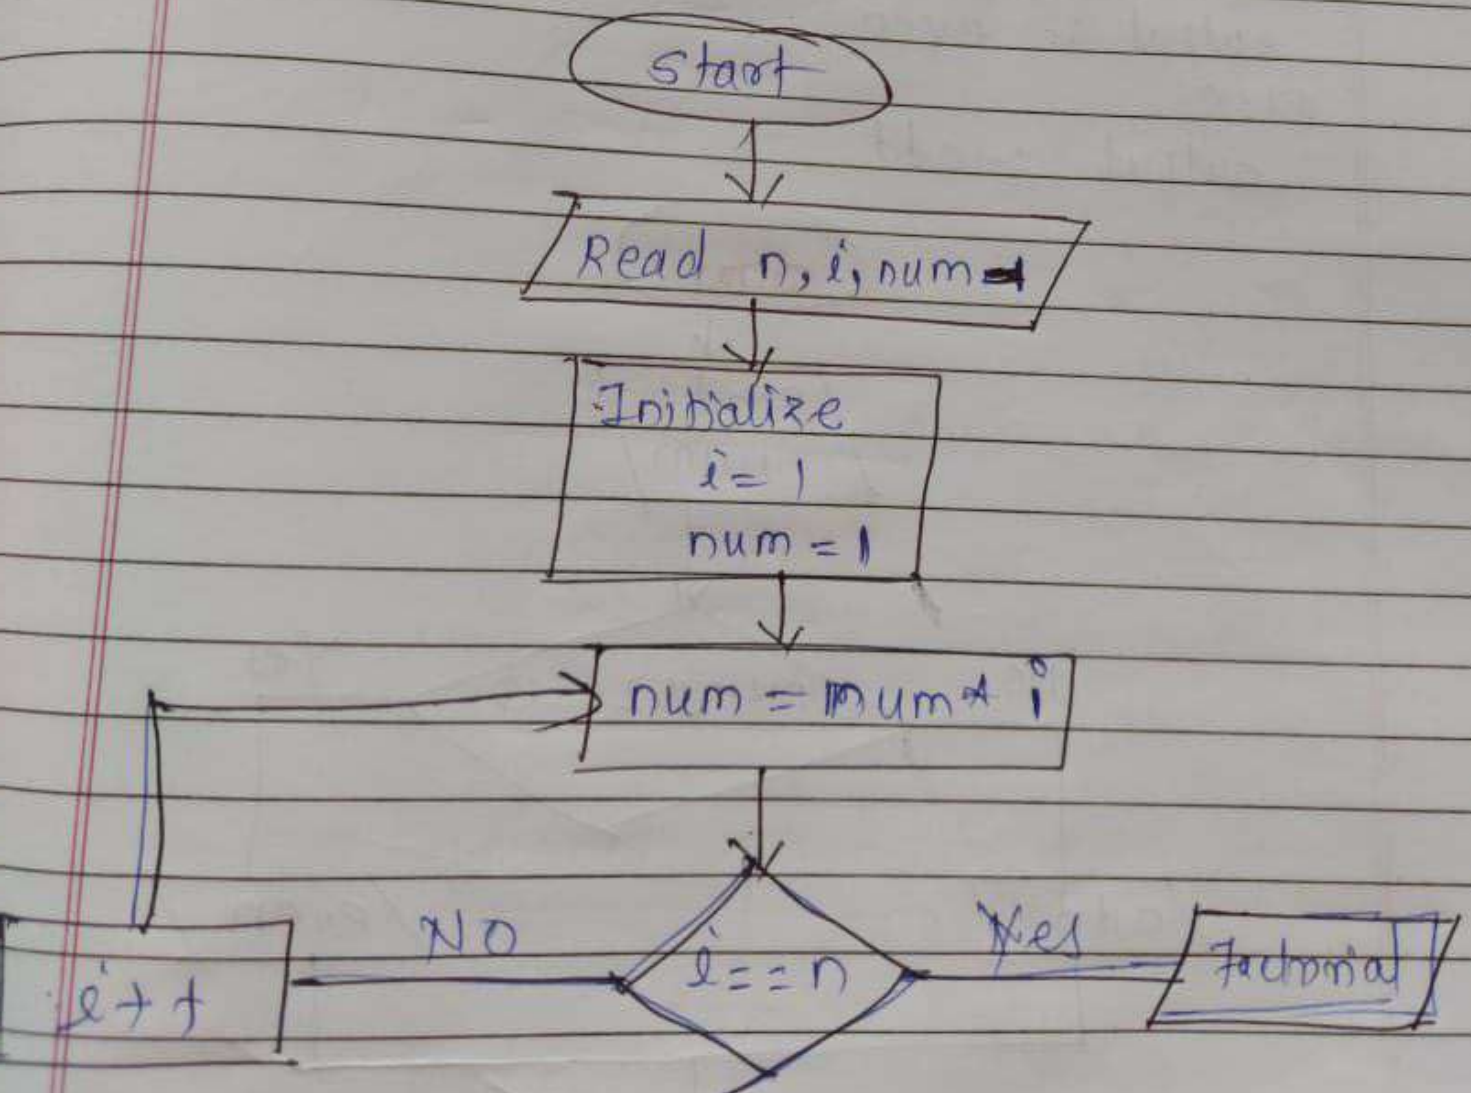 Start
Read n, i, num
Initialize
i = 1
num = 1
num = num * i
i == n
NO
Yes
i++
Factorial